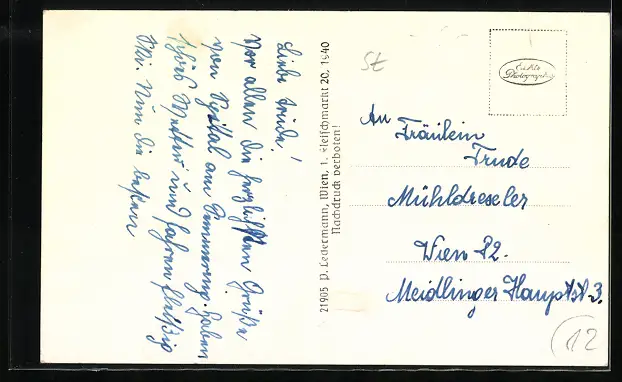 Liebe Trude!
Vor allem die herzlichsten Grüße
von Spital am Semmering. Haben
schönes Wetter und fahren fleißig
Ski. Nun die besten
21905 P. Ledermann, Wien, 1. Fleischmarkt 20, 1940
Nachdruck verboten!
St
Echte
Photographie
An
Fräulein
Trude
Mühldreseler
Wien 82.
Meidlinger Hauptst. 3.
12